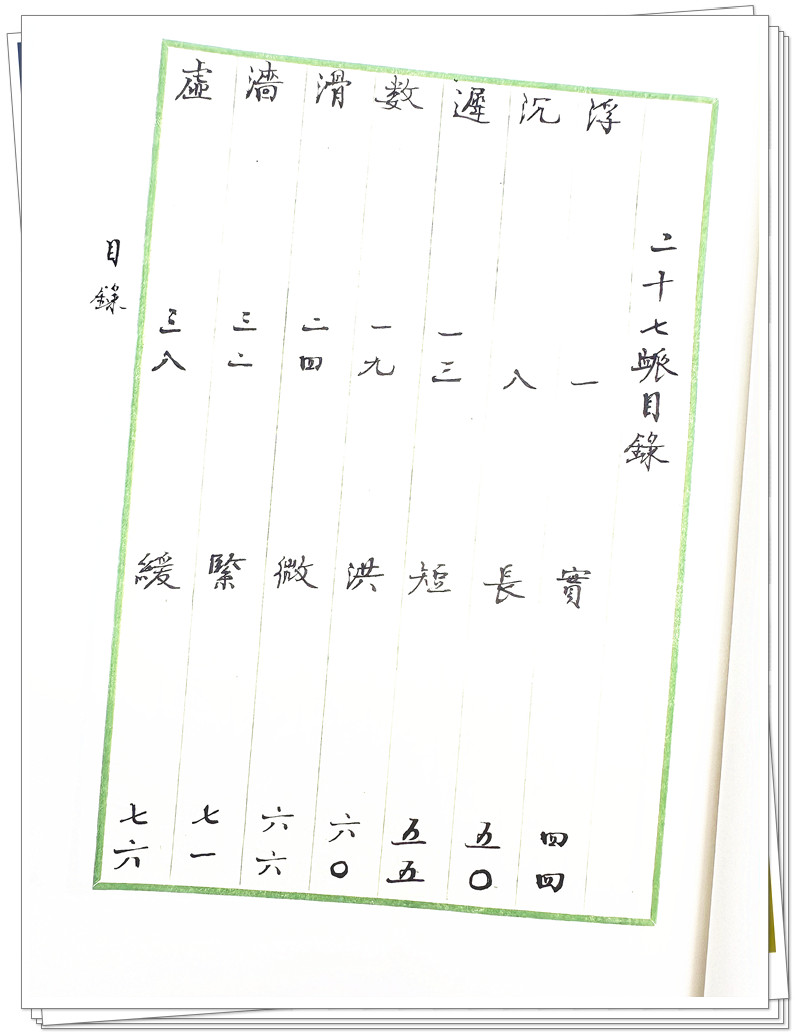 二十七衇目錄
浮 一 實 四四
沉 八 長 五〇
遲 一三 短 五五
数 一九 洪 六〇
滑 二四 微 六六
濇 三二 緊 七一
虛 三八 緩 七六
目錄